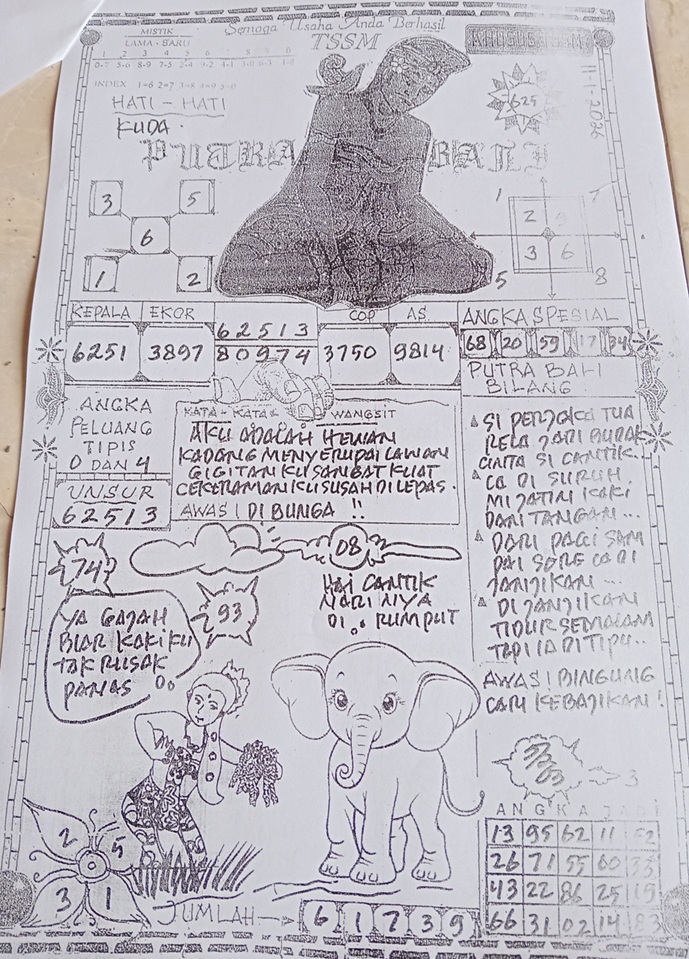 Semoga Usaha Anda Berhasil
TSSM
MISTIK
LAMA - BARU
1 2 3 4 5 6 7 8 9 0
INDEX 1=6 2=7 3=8 4=9 5=0
HATI - HATI
KUDA.
PUTRA BALI
625
11-1-2026
3 5
6
1 2
1 7
2 9
3 6
5 8
KEPALA EKOR COP AS
6251 3897 62513 3750 9814
80974
ANGKA SPESIAL
68 20 59 17 34
PUTRA BALI
BILANG
ANGKA
PELUANG
TIPIS
0 DAN 4
UNSUR
62513
KATA - KATA WANGSIT
AKU ADALAH HEWAN
KADANG MENYERUPAI LAWAN
GIGITANKU SANGAT KUAT
CEKERAMANKU SUSAH DILEPAS.
AWAS! DI BUNGA !!
SI PERJAKA TUA
RELA JADI BUDAK
CINTA SI CANTIK...
DI SURUH
MIJATIN KAKI
DAN TANGAN...
DARI PAGI SAM
PAI SORE
JANJIKAN...
DI JANJIKAN
TIDUR SEMALAM
TAPI IA DITIPU..
AWAS! BINGUNG
CARI KEBAJIKAN!
74
08
93
HAI CANTIK
NARINYA
DI.. RUMPUT
YA GAJAH
BIAR KAKIKU
TAK RUSAK
PANAS
3
ANGKA JADI
13 95 62 11 52
26 71 55 60 35
43 22 86 25 19
66 31 02 14 83
2 5
3 1
JUMLAH
6 1 7 3 9